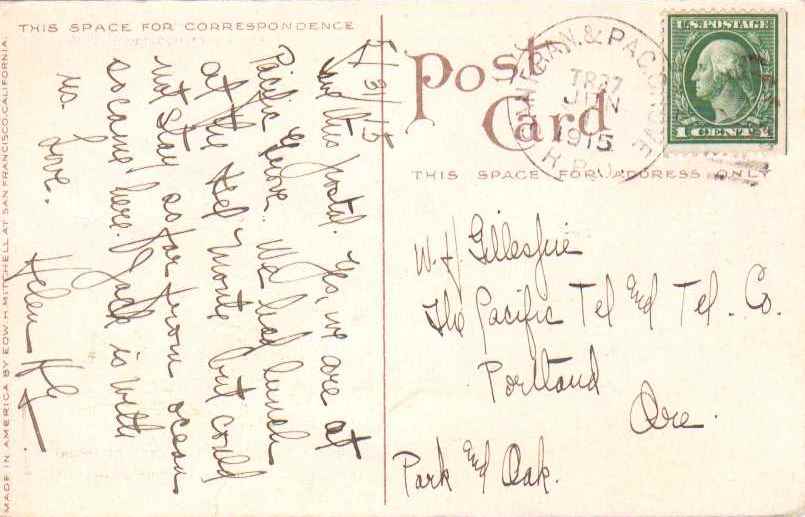 THIS SPACE FOR CORRESPONDENCE
Post
Card
THIS SPACE FOR ADDRESS ONLY
SAN FRAN. & PAC. GROVE
TR 27
JUN
1915
R.P.O.
U.S. POSTAGE
1 CENT 1
6/3/15
this postal. Yes, we are at
Pacific Grove. We had lunch
at the Del Monte but could
not stay so far from ocean
so came here. Jack is with
us. Love.
Helen
W. J. Gillespie
The Pacific Tel and Tel. Co.
Portland
Ore.
Park and Oak.
MADE IN AMERICA BY EDW. H. MITCHELL AT SAN FRANCISCO, CALIFORNIA.